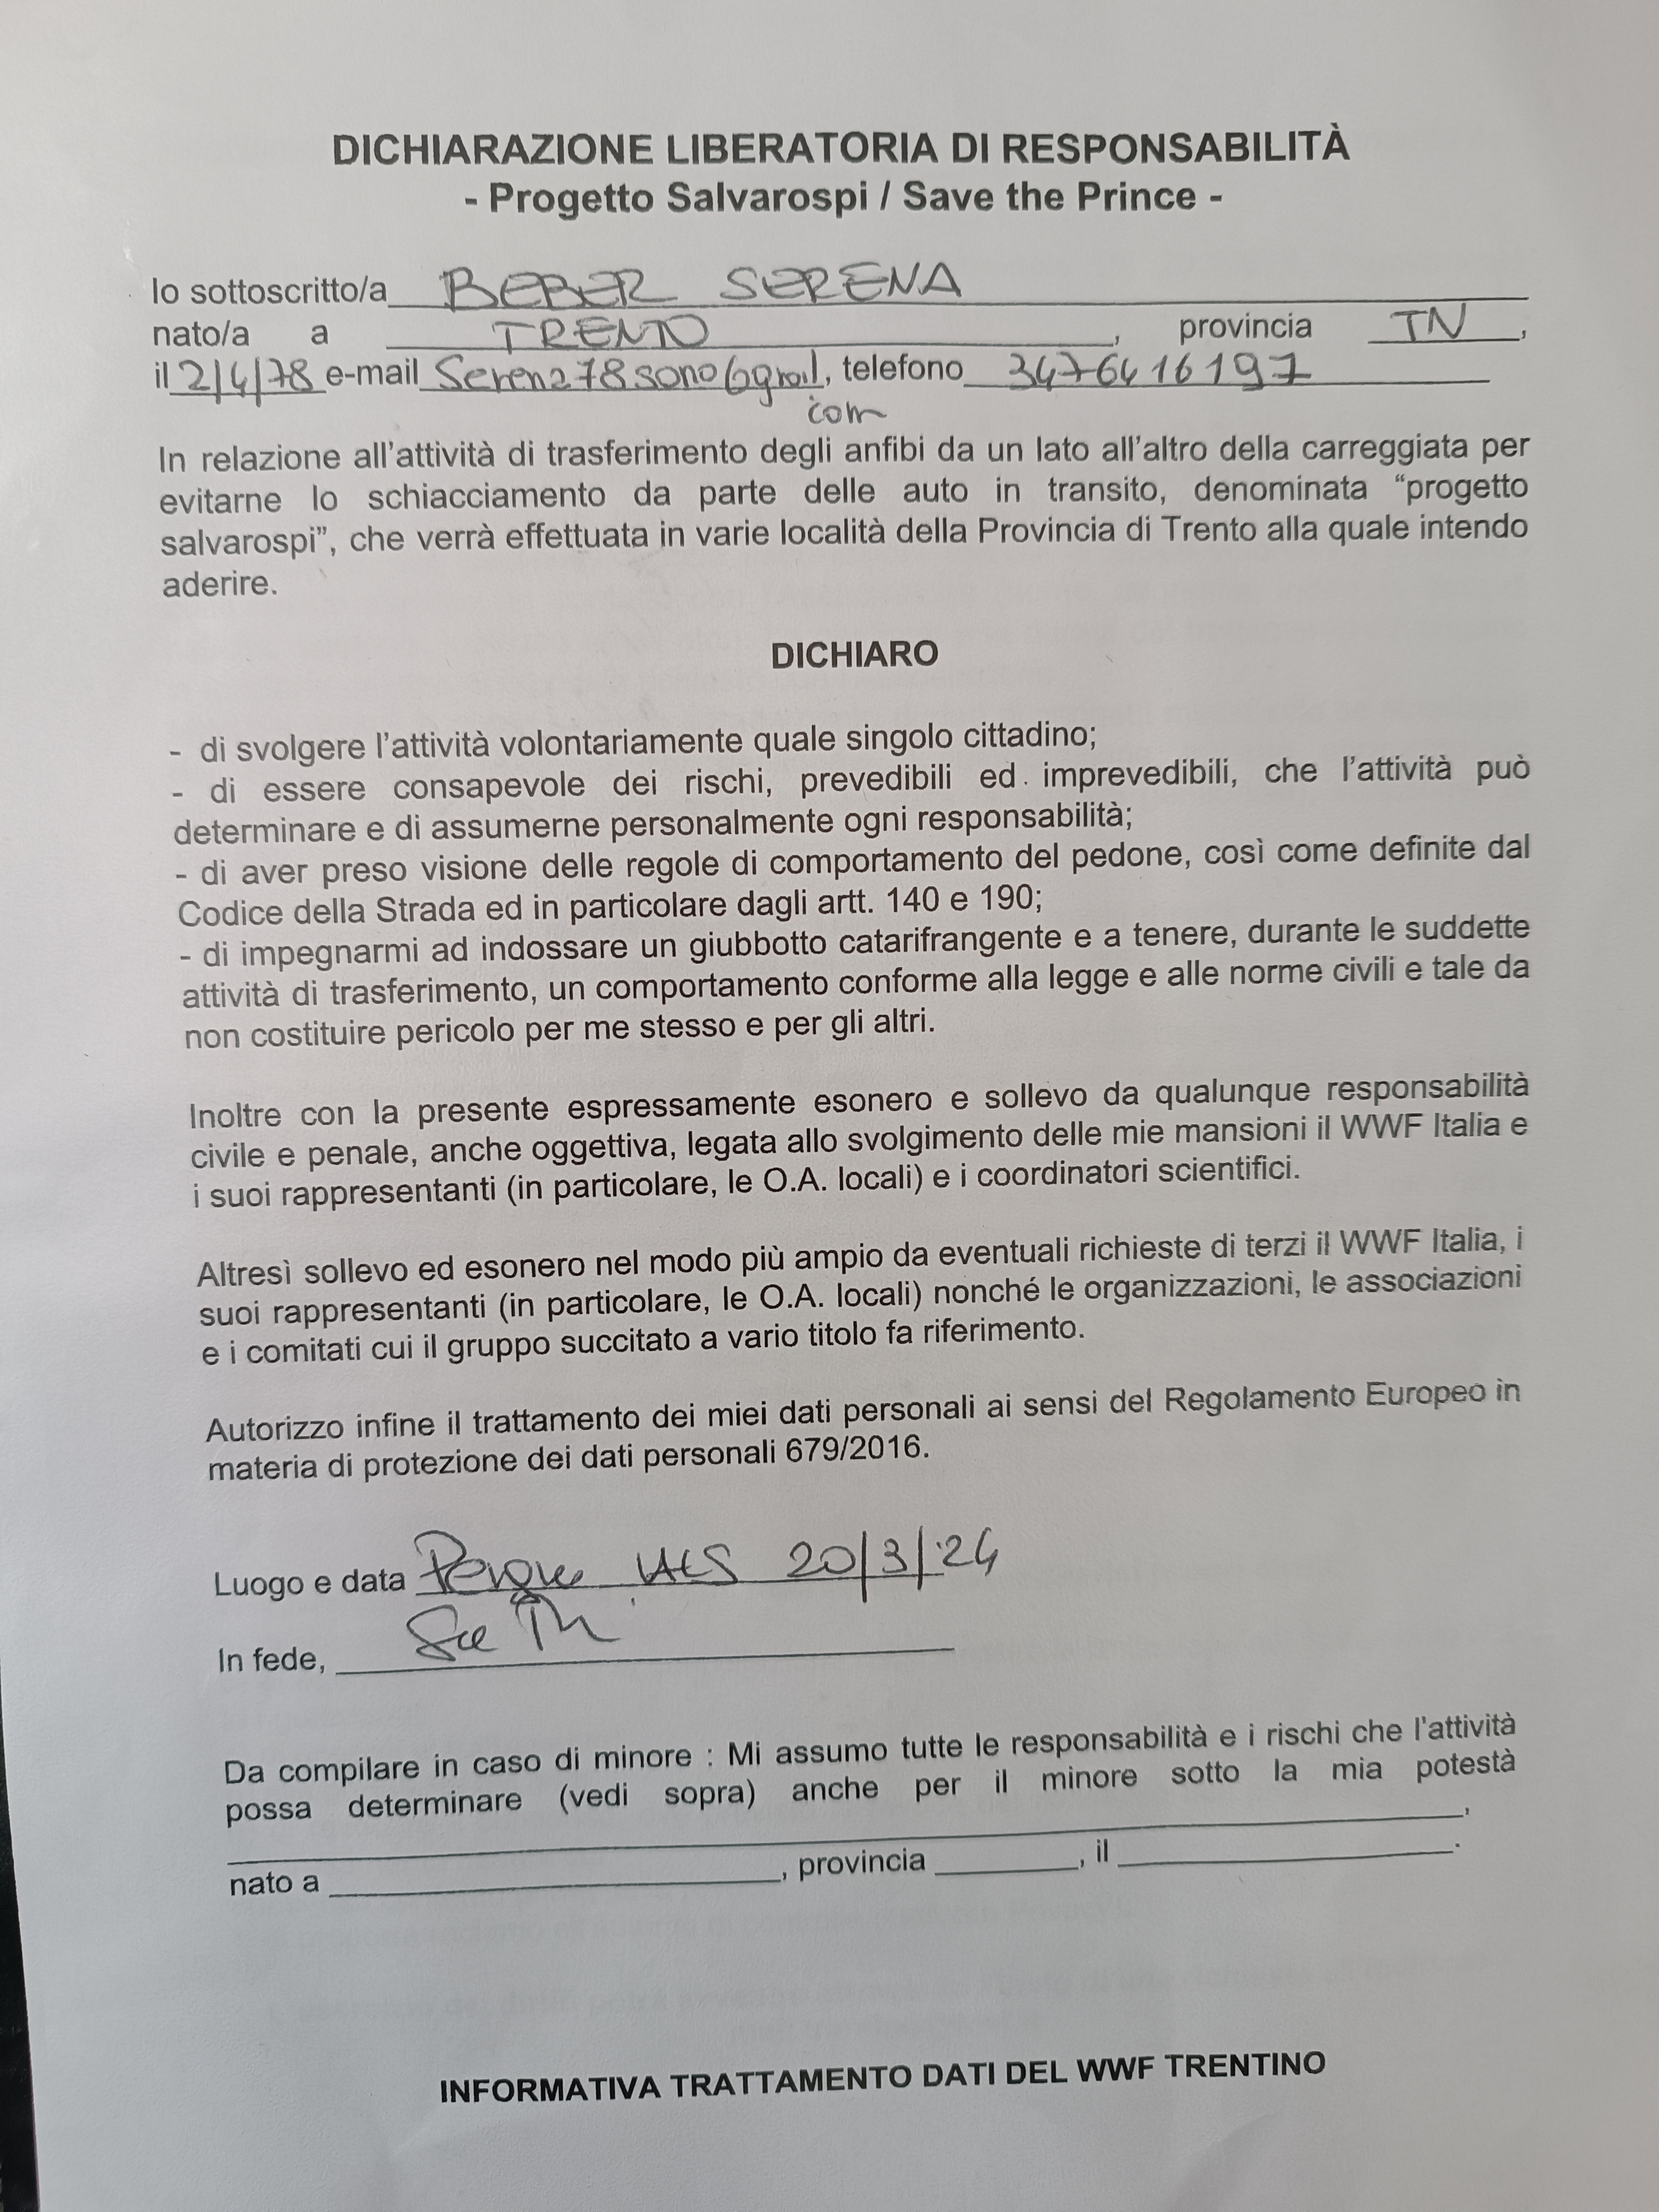 DICHIARAZIONE LIBERATORIA DI RESPONSABILITÀ
- Progetto Salvarospi / Save the Prince -
Io sottoscritto/a BEBER SERENA
nato/a a TRENTO, provincia TN,
il 2/4/78 e-mail Serena78sono@gmail, telefono 3476416197
com
In relazione all'attività di trasferimento degli anfibi da un lato all'altro della carreggiata per
evitarne lo schiacciamento da parte delle auto in transito, denominata “progetto
salvarospi”, che verrà effettuata in varie località della Provincia di Trento alla quale intendo
aderire.
DICHIARO
- di svolgere l'attività volontariamente quale singolo cittadino;
- di essere consapevole dei rischi, prevedibili ed imprevedibili, che l'attività può
determinare e di assumerne personalmente ogni responsabilità;
- di aver preso visione delle regole di comportamento del pedone, così come definite dal
Codice della Strada ed in particolare dagli artt. 140 e 190;
- di impegnarmi ad indossare un giubbotto catarifrangente e a tenere, durante le suddette
attività di trasferimento, un comportamento conforme alla legge e alle norme civili e tale da
non costituire pericolo per me stesso e per gli altri.
Inoltre con la presente espressamente esonero e sollevo da qualunque responsabilità
civile e penale, anche oggettiva, legata allo svolgimento delle mie mansioni il WWF Italia e
i suoi rappresentanti (in particolare, le O.A. locali) e i coordinatori scientifici.
Altresì sollevo ed esonero nel modo più ampio da eventuali richieste di terzi il WWF Italia, i
suoi rappresentanti (in particolare, le O.A. locali) nonché le organizzazioni, le associazioni
e i comitati cui il gruppo succitato a vario titolo fa riferimento.
Autorizzo infine il trattamento dei miei dati personali ai sensi del Regolamento Europeo in
materia di protezione dei dati personali 679/2016.
Luogo e data 20/3/24
In fede,
Da compilare in caso di minore : Mi assumo tutte le responsabilità e i rischi che l'attività
possa determinare (vedi sopra) anche per il minore sotto la mia potestà
,
nato a , provincia , il .
INFORMATIVA TRATTAMENTO DATI DEL WWF TRENTINO